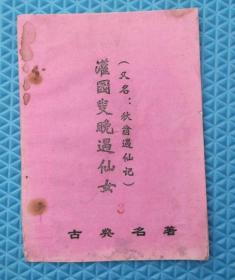 (又名：秋翁遇仙记)
灌园叟晚遇仙女
3
古典名著